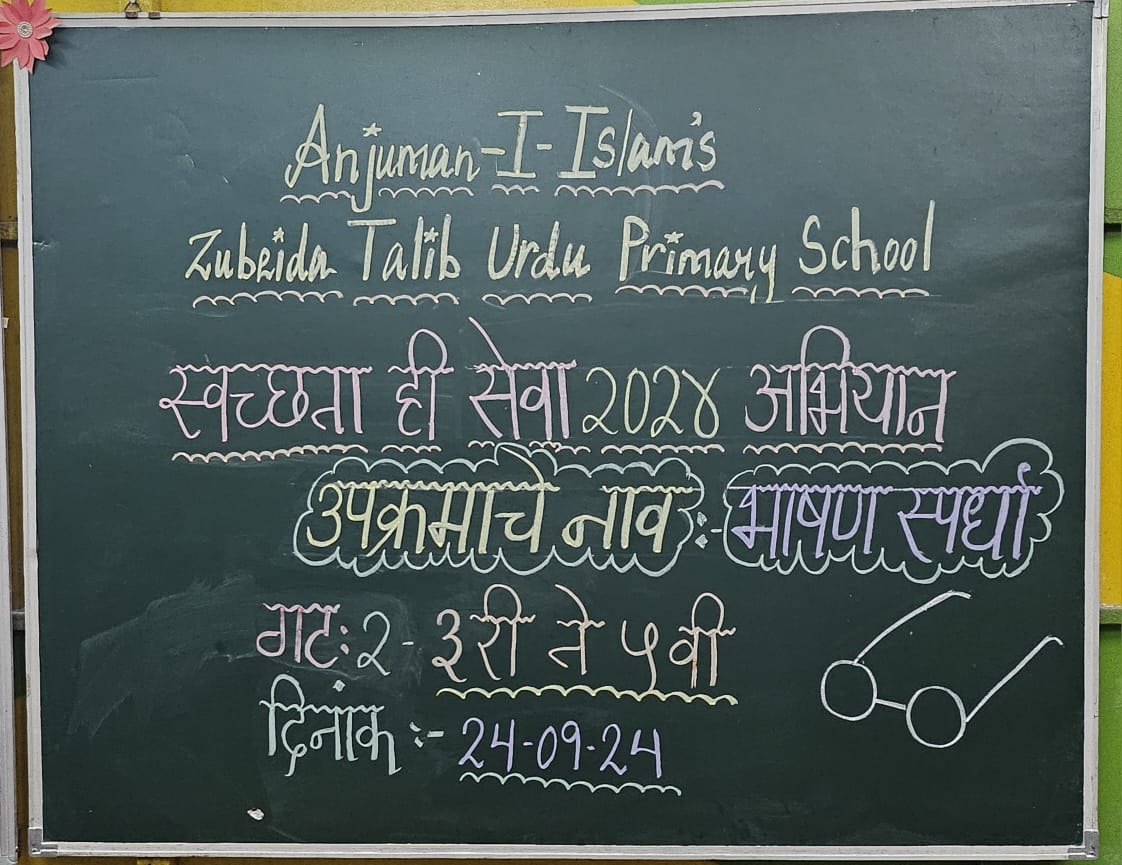 Anjuman-I-Islam's
Zubeida Talib Urdu Primary School
स्वच्छता ही सेवा २०२४ अभियान
उपक्रमाचे नाव :- भाषण स्पर्धा
गटः २ - ३री ते ५वी
दिनांक :- 24-09-24